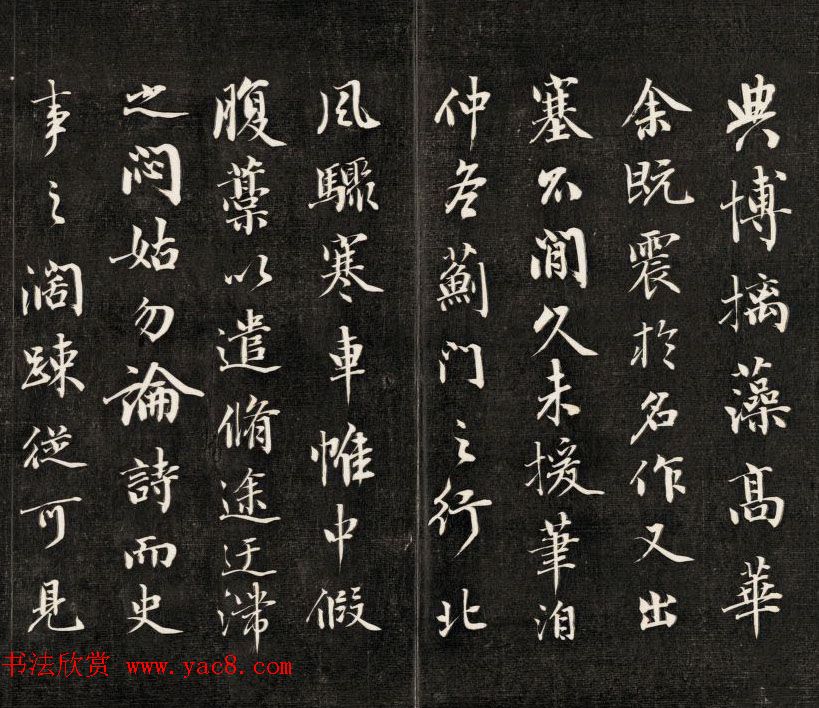 典博摛藻高華
余既震於名作又出
塞不閒久未援筆洎
仲冬薊门之行北
風驟寒車帷中假
腹藁以遣脩途迂滯
之闷姑勿論詩而史
事之濶踈從可見
书法欣赏 www.yac8.com